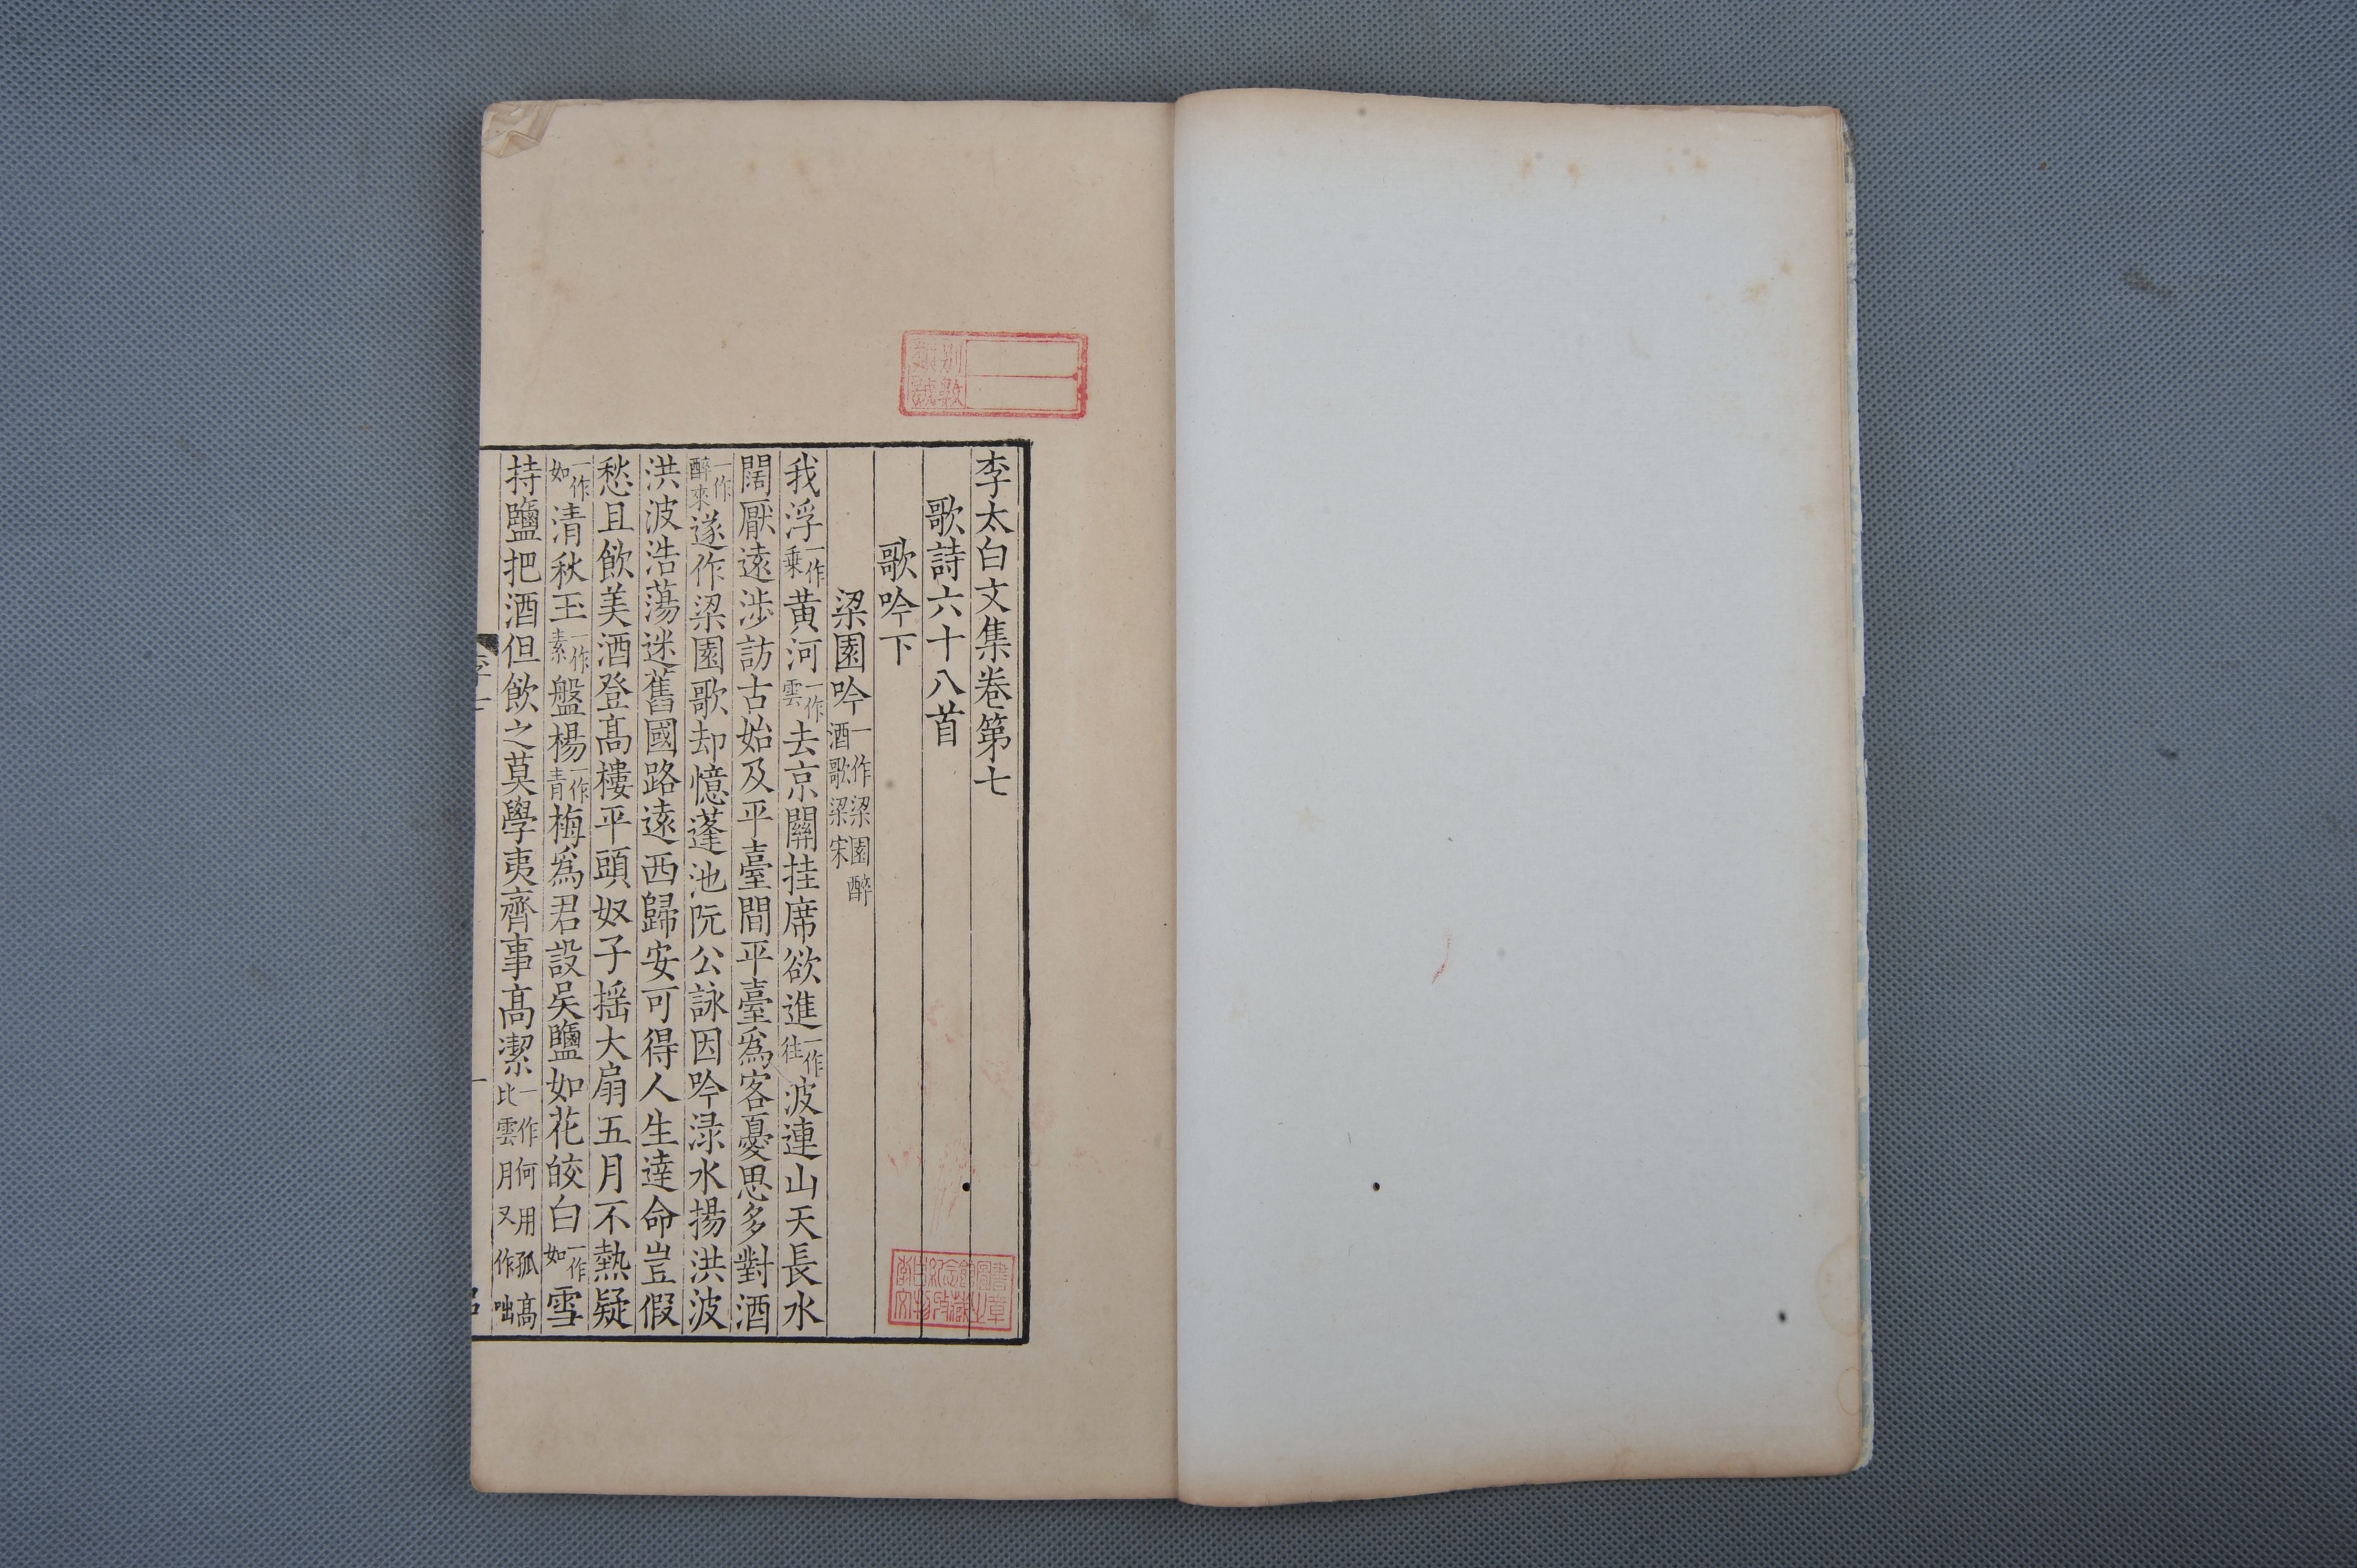 李太白文集卷第七
歌詩六十八首
歌吟下
梁園吟一作梁園醉酒歌梁宋
我浮一作乗黄河一作雲去京關挂席欲進一作往波連山天長水
闊厭遠渉訪古始及平臺間平臺爲客憂思多對酒
一作醉來遂作梁園歌却憶蓬池阮公詠因吟渌水揚洪波
洪波浩蕩迷舊國路遠西歸安可得人生達命豈假
愁且飲美酒登髙樓平頭奴子揺大扇五月不熱疑
一作如清秋玉一作素盤楊一作青梅爲君設吴鹽如花皎白一作如雪
持鹽把酒但飲之莫學夷齊事髙潔一作何用孤高比雲月又作咄
類別
號數
李白紀念館圖書
文物收藏之章